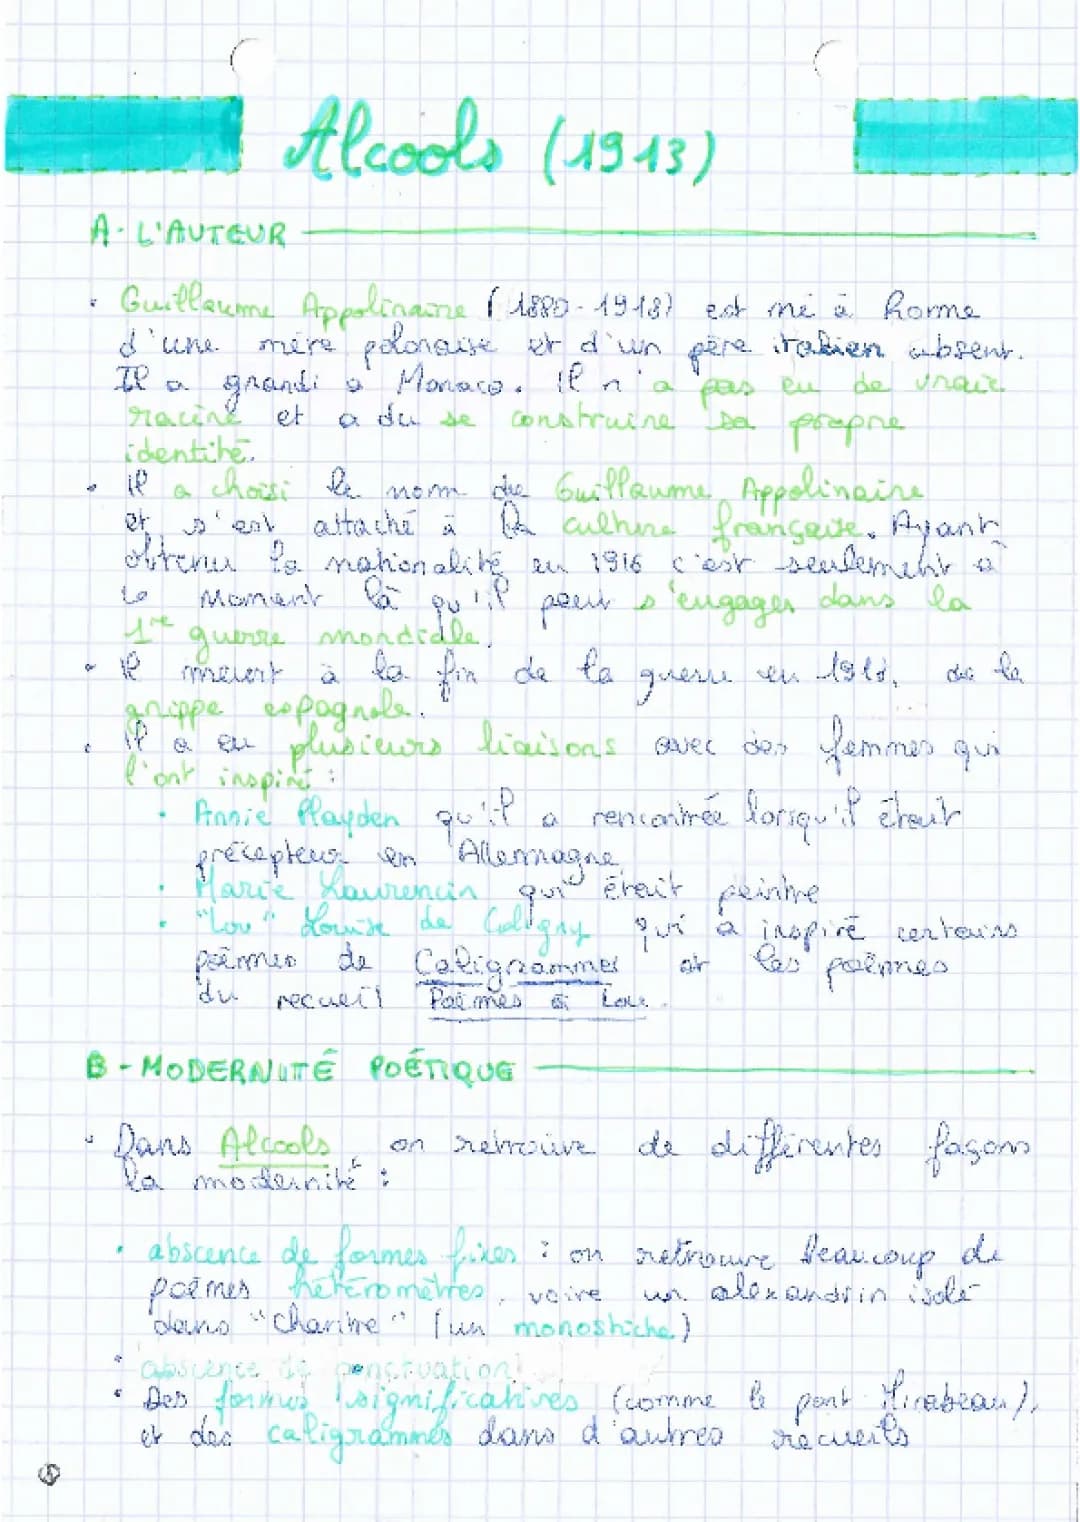 Alcools (1913)
A - L'AUTEUR
• Guillaume Appolinaire (1880-1918) est né à Rome
d'une mère polonaise et d'un père italien absent.
Il a grandi a Monaco. Il n'a pas eu de vraie
racine et a du se construire sa propre
identité.
• Il a choisi le nom de Guillaume Appolinaire
et s'est attaché à la culture française. Ayant
obtenu la nationalité en 1916 c'est seulement à
ce moment là qu'il peut s'engager dans la
1re guerre mondiale.
• Il meurt à la fin de la guerre en 1918, de la
grippe espagnole.
• Il a eu plusieurs liaisons avec des femmes qui
l'ont inspiré :
• Annie Playden qu'il a rencontrée lorsqu'il était
précepteur en Allemagne
• Marie Laurencin qui était peintre
• "Lou" Louise de Coligny qui a inspiré certains
poèmes de Caligrammes et les poèmes
du recueil Poèmes à Lou.
B - MODERNITÉ POÉTIQUE
• Dans Alcools, on retrouve de différentes façons
la modernité :
• abscence de formes fixes : on retrouve beaucoup de
poèmes hétéromètres, voire un alexandrin isolé
dans "Chantre" (un monostiche)
• abscence de ponctuation
• Des formes significatives (comme le pont Mirabeau),
et des caligrammes dans d'autres recueils